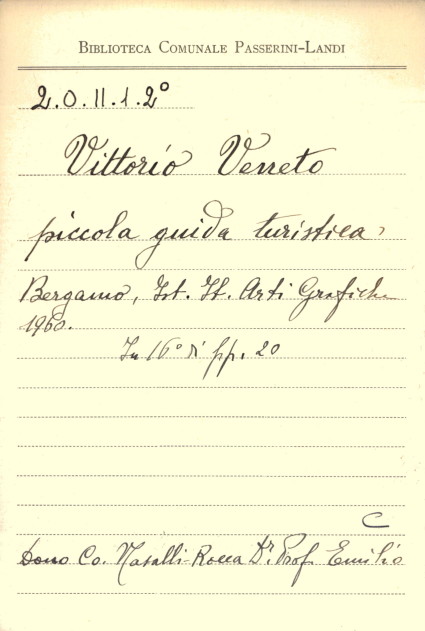 BIBLIOTECA COMUNALE PASSERINI-LANDI
2.O.II.1.2°
Vittorio Veneto
piccola guida turistica,
Bergamo, Ist. It. Arti Grafiche
1960.
In 16° di pp. 20
C
Dono Co. Nasalli-Rocca Dr. Prof. Emilio